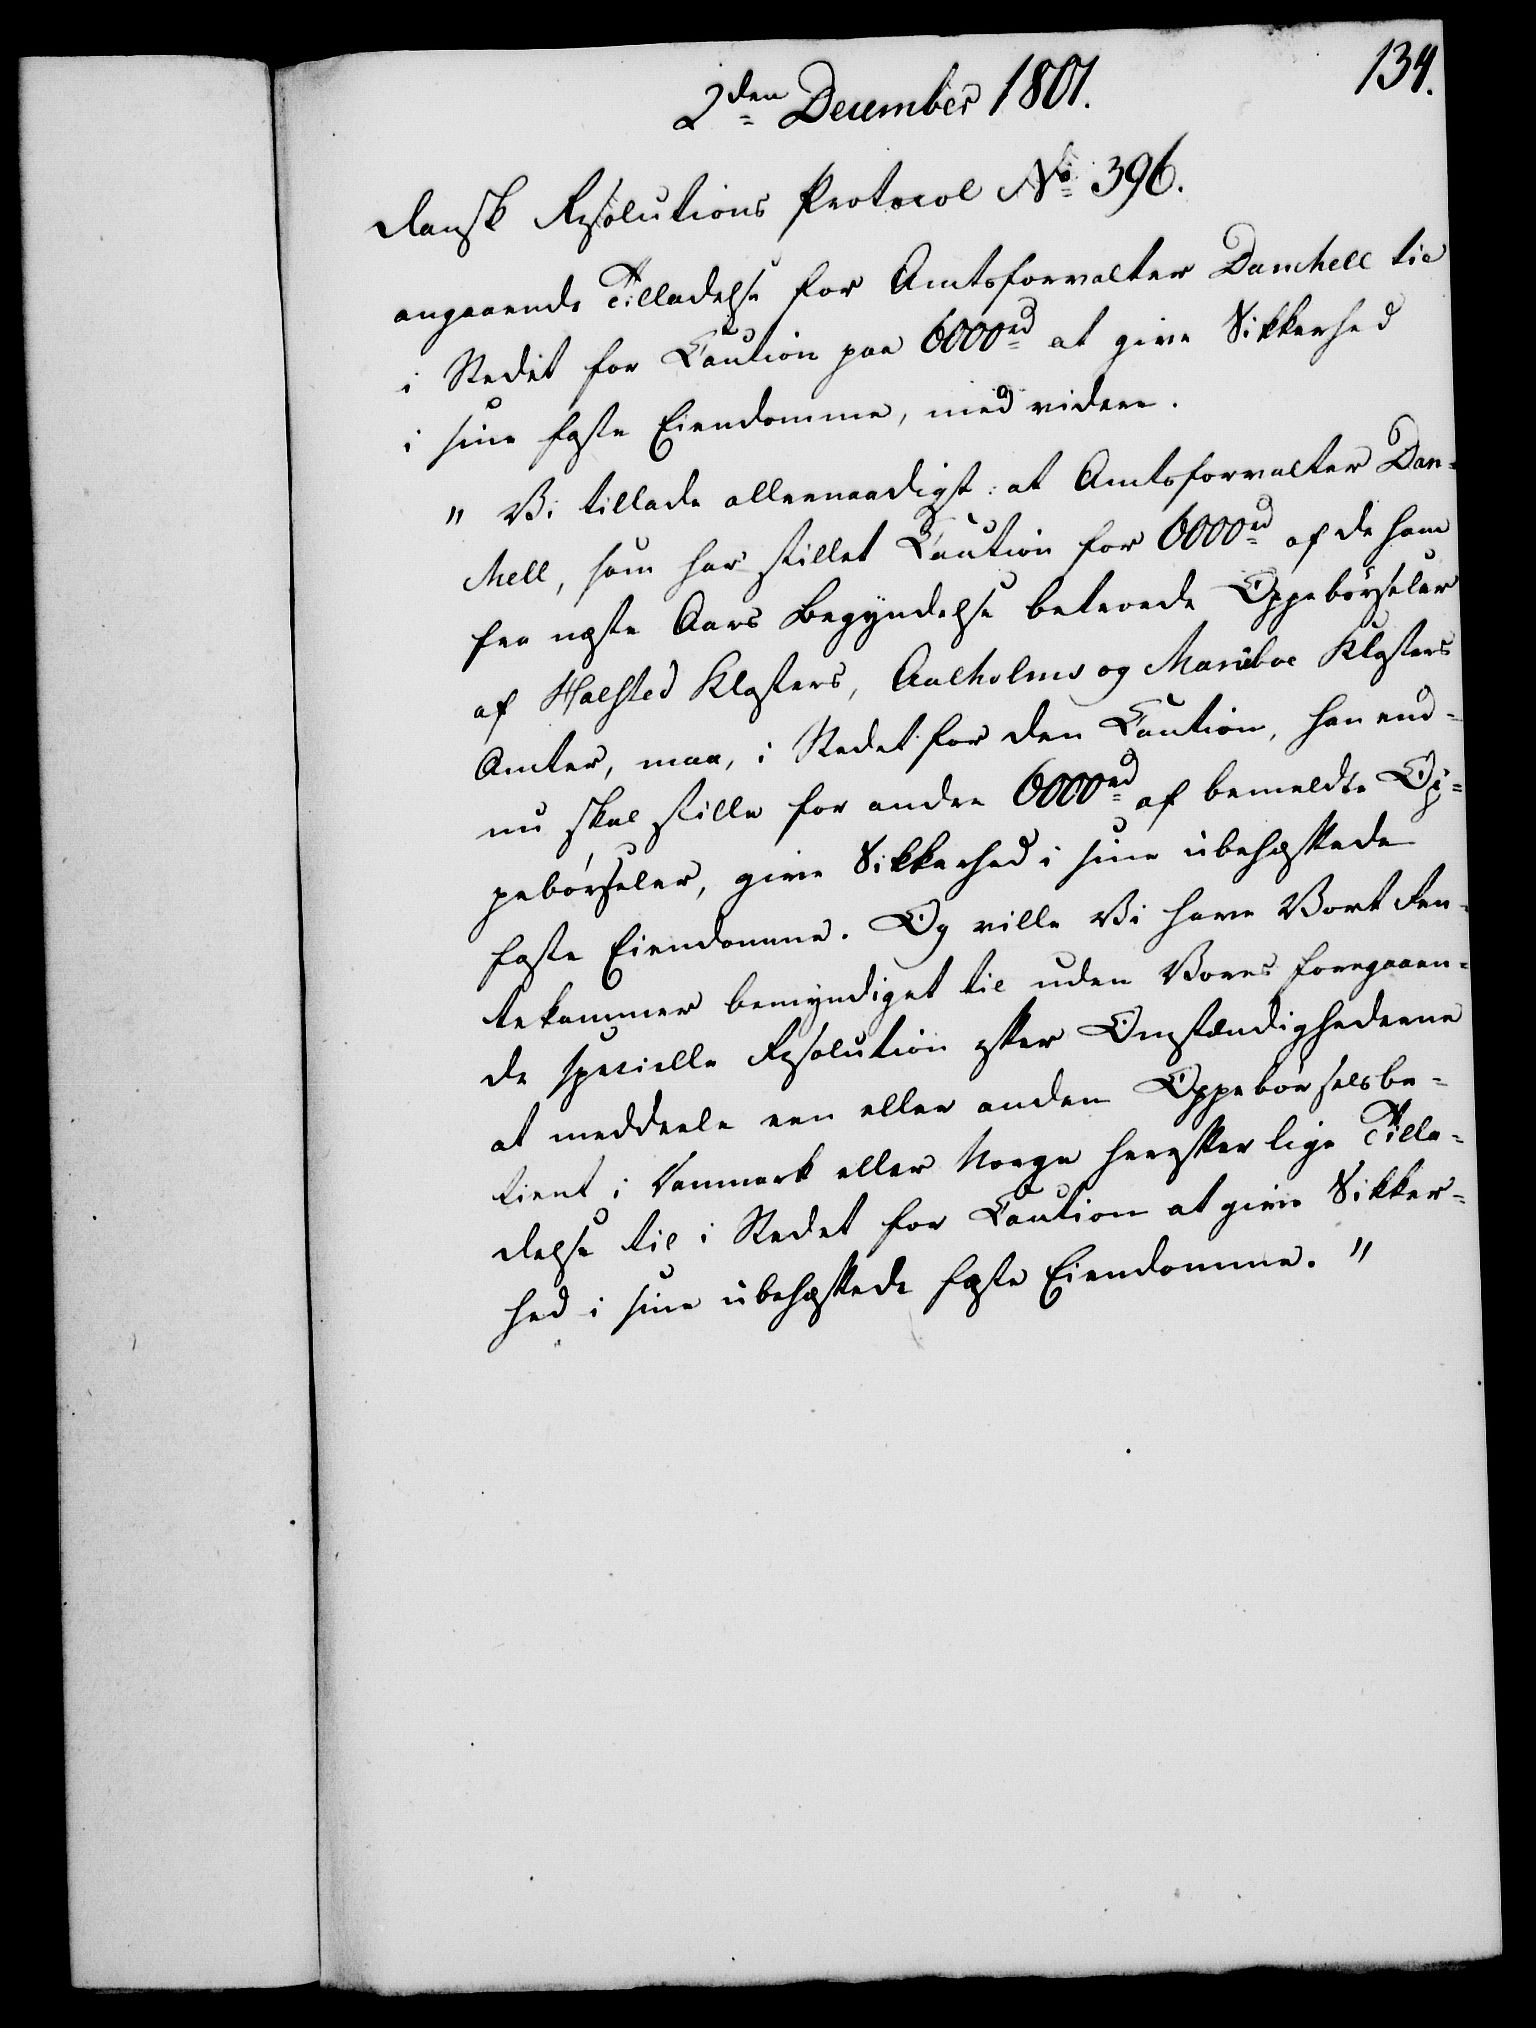 134.
2den December 1801.
Dansk Resolutions Protocol No 396.
angaaende Tilladelse for Amtsforvalter Danchell til
i Stedet for Caution paa 6000rd at give Sikkerhed
i sine faste Eiendomme, med videre.
" Vi tillade allernaadigst: at Amtsforvalter Dan-
chell, som har stillet Caution for 6000rd af de ham
fra næste Aars Begyndelse betroede Oppebörseler
af Halsted Klosters, Aalholms og Mariboe Klosters
Amter, maa, i Stedet for den Caution, han end-
nu skal stille for andre 6000rd af bemeldte Op-
pebörseler, give Sikkerhed i sine ubehæftede
faste Eiendomme. Og ville Vi have Vort Ren-
tekammer bemyndiget til uden Vores foregaaen-
de specielle Resolution efter Omstændighederne
at meddeele een eller anden Oppebörselsbe-
tient i Danmark eller Norge herefter lige Tilla-
delse til i Stedet for Caution at give Sikker-
hed i sine ubehæftede faste Eiendomme. "